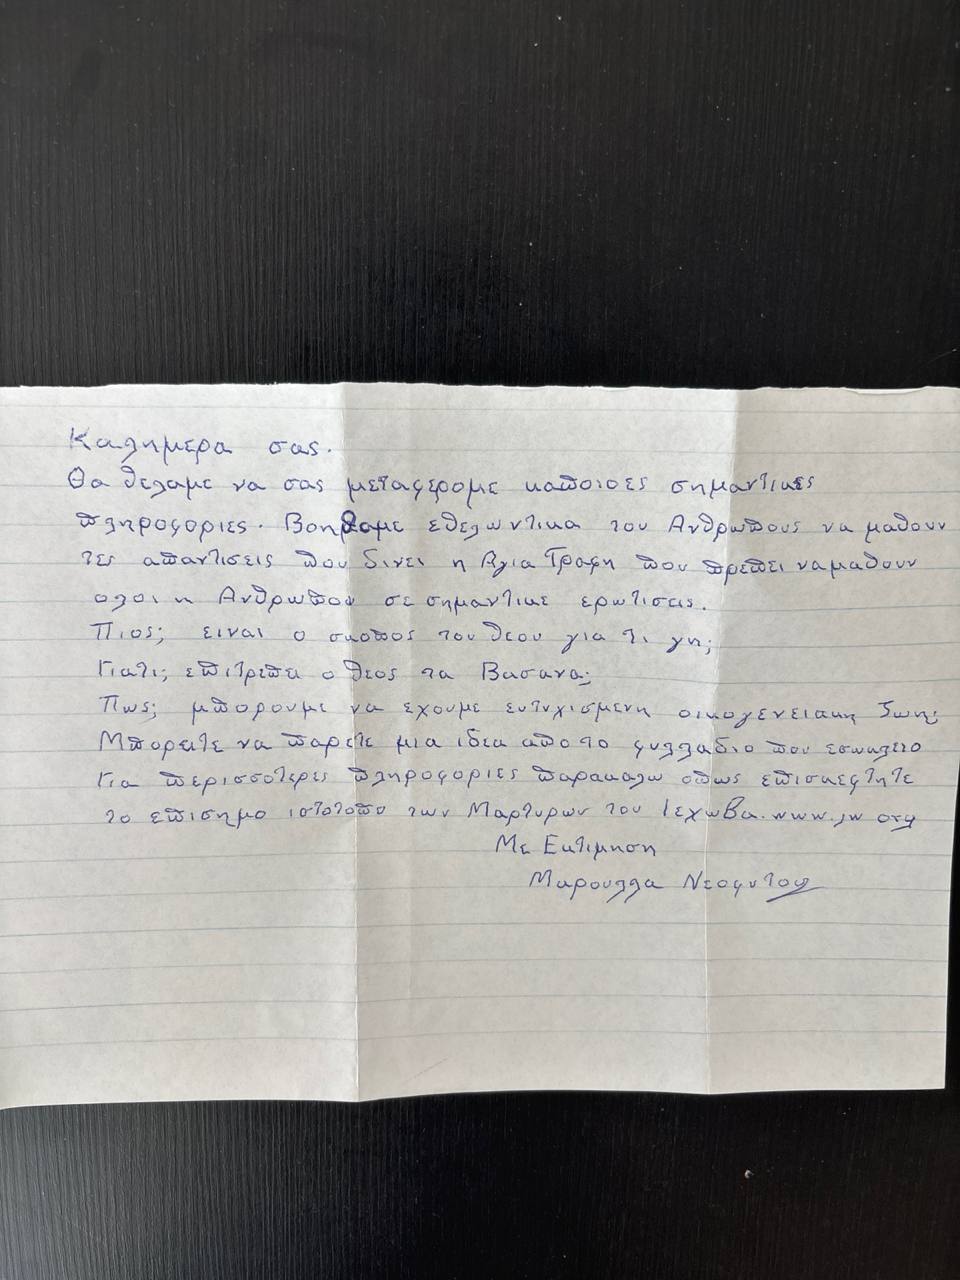 Καλημερα σας.
Θα θελαμε να σας μεταφερομε καποιοες σημαντικες
πληροφοριες. Βοηθαμε εθελωντικα του Ανθρωπους να μαθουν
τες απαντισεις που δινει η Αγια Γραφη που πρεπει ναμαθουν
ολοι η Ανθρωποι σε σημαντικε ερωτισεις.
Πιος; ειναι ο σκοπος του θεου για τι γη;
Γιατι; επιτρεπει ο θεος τα Βασανα;
Πως; μπορουμε να εχουμε ευτυχισμενη οικογενειακη ζωη;
Μπορειτε να παρετε μια ιδεα απο το φυλλαδιο που εσωκλειο
Για περισσοτερες πληροφοριες παρακαλω οπως επισκεφτητε
το επισημο ιστοτοπο των Μαρτυρων του Ιεχωβα. www.jw org
Με Εκτιμηση
Μαρουλλα Νεοφυτου